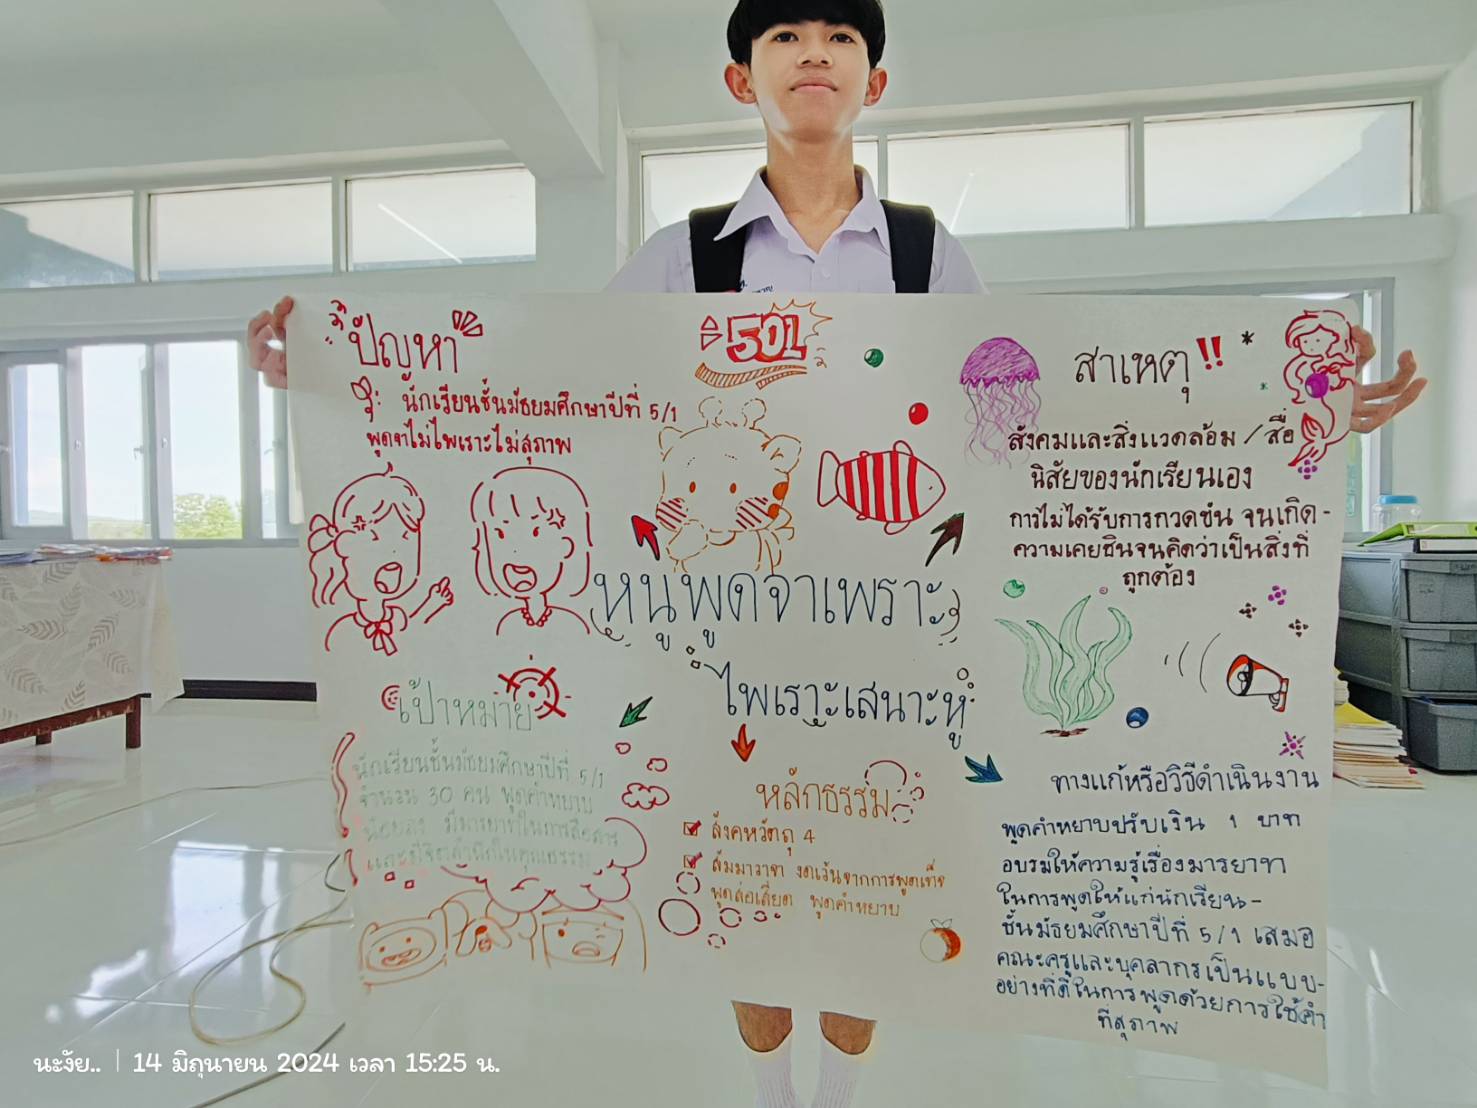 ปัญหา
นักเรียนชั้นมัธยมศึกษาปีที่ 5/1
พูดจาไม่ไพเราะไม่สุภาพ
501
สาเหตุ !!
สังคมและสิ่งแวดล้อม / สื่อ
นิสัยของนักเรียนเอง
การไม่ได้รับการกวดขัน จนเกิด-
ความเคยชินจนคิดว่าเป็นสิ่งที่
ถูกต้อง
หนูพูดจาเพราะ
ไพเราะเสนาะหู
เป้าหมาย
นักเรียนชั้นมัธยมศึกษาปีที่ 5/1
จำนวน 30 คน พูดคำหยาบ
น้อยลง มีมารยาทในการสื่อสาร
และมีจิตสำนึกในคุณธรรม
หลักธรรม
สังคหวัตถุ 4
สัมมาวาจา งดเว้นจากการพูดเท็จ
พูดส่อเสียด พูดคำหยาบ
ทางแก้หรือวิธีดำเนินงาน
พูดคำหยาบปรับเงิน 1 บาท
อบรมให้ความรู้เรื่องมารยาท
ในการพูดให้แก่นักเรียน-
ชั้นมัธยมศึกษาปีที่ 5/1 เสมอ
คณะครูและบุคลากรเป็นแบบ-
อย่างที่ดีในการพูดด้วยการใช้คำ
ที่สุภาพ
นะงัย.. | 14 มิถุนายน 2024 เวลา 15:25 น.